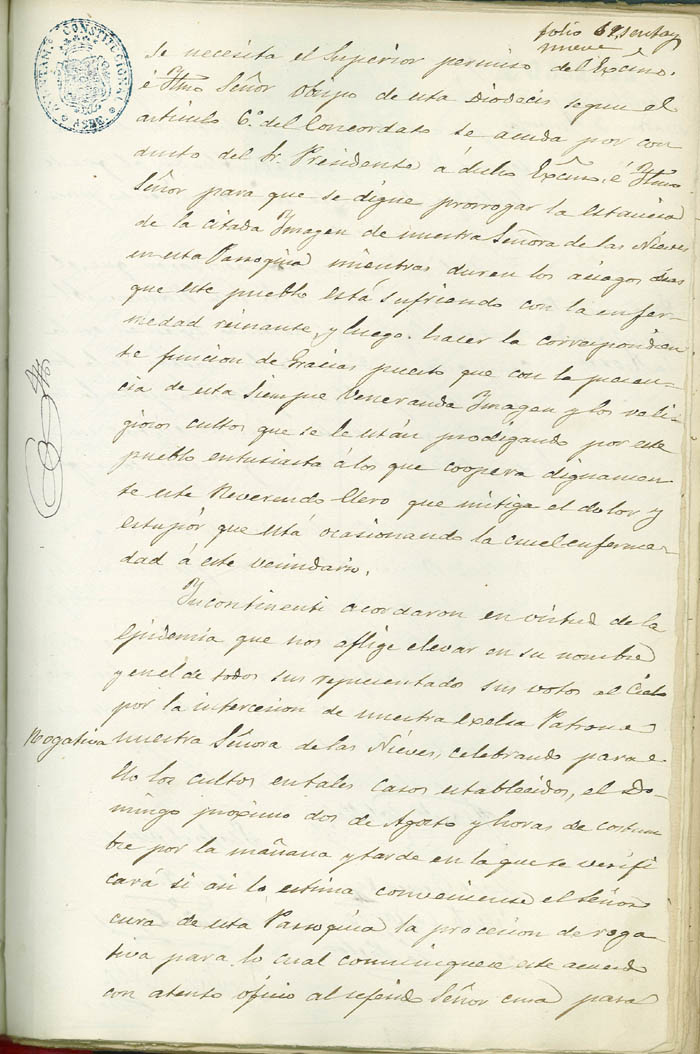 folio 69, sesenta y
nueve
AYUNTAM.º CONSTITUCIONAL
ASPE
se necesita el Superior permiso del Excmo.
é Ytmo Señor Obispo de esta Diócecis segun el
articulo 6.º del Concordato se acuda por con
ducto del Sr. Presidente á dicho Excmo. é Ytmo
Señor para que se digne prorrogar la estancia
de la citada Ymagen de nuestra Señora de las Nieves
en esta Parroquia mientras duren los aciagos dias
que este pueblo está sufriendo con la enfer-
medad reinante, y luego hacer la correspondien
te funcion de Gracias puesto que con la presen-
cia de esta Siempre Veneranda Ymagen y los reli-
giosos cultos que se le están prodigando por este
pueblo entusiasta á los que coopera dignamen
te este Reverendo Clero que mitiga el dolor y
estupór que está ocasionando la cruel enferme-
dad á este vecindario.
Yncontinenti acordaron en virtud de la
Epidemia que nos aflige elevar en su nombre
y en el de todos sus representados sus votos al Cielo
por la intercesion de nuestra Excelsa Patrona
Rogativa
nuestra Señora de las Nieves, celebrando para e
llo los cultos en tales casos establecidos, el Do-
mingo proximo dos de Agosto y horas de costum
bre por la mañana y tarde en la que se verifi
cará si asi lo estima conveniente el Señor
cura de esta Parroquia la procesion de roga-
tiva para lo cual comuniquese este acuerdo
con atento oficio al referido Señor cura para